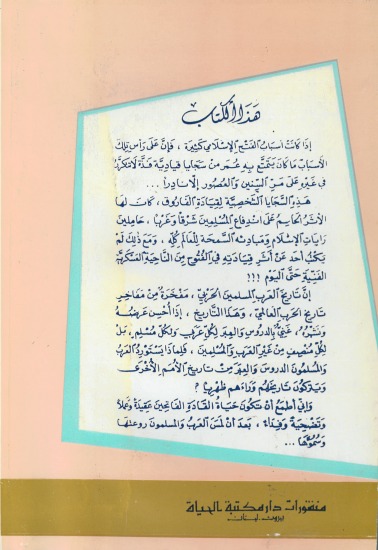 هَذَا الكتَاب
إذا كانت أسبابُ الفتح الإسلامي كثيرة، فإنَّ على رأس تلك
الأسباب ما كان يتمتّع به عُمر من سجايا قيادية فذّة لا تتكرّر
في غيره على مرّ السِّنين والعُصُور إلّا نادراً...
هذه السَّجايا الشخصيّة لقيادة الفاروق، كانت لها
الأثر الحاسم على اندفاع المُسلمين شرقاً وغرباً، حاملين
رايات الإسلام ومبادئه السَّمحة للعالم كلّه، ومع ذلك لم
يكتب أحد عن أثر قيادته في الفتوح من الناحية العسكرية
الفنيّة حتّى اليوم !!!
إنَّ تاريخ العرب المسلمين الحربيّ، مفخرة من مفاخر
تاريخ الحرب العالميّ، وهذا التاريخ، إذا أحسن عرضه
وتنبّه، غنيٌّ بالدروس والعبر لكلّ عربي ولكل مُسلم، بل
لكلّ منصف من غير العرب والمسلمين، فلماذا يستورد العرب
والمسلمون الدروس والعبر من تاريخ الأمم الأخرى
ويتركون تاريخهُم وراءهم ظهرياً؟
وإني أطمع أن تكون حياة القادة الفاتحين عقيدة وعملاً
وتضحية وفداءً، بعد أن لمس العرب والمسلمون روعتها
وسُموّها...
منشورات دار مكتبة الحياة
بيروت - لبنان